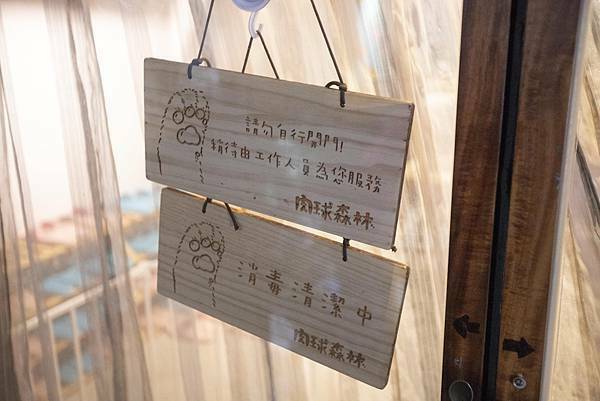 請勿自行開門!
稍待由工作人員為您服務
肉球森林
消毒清潔中
肉球森林